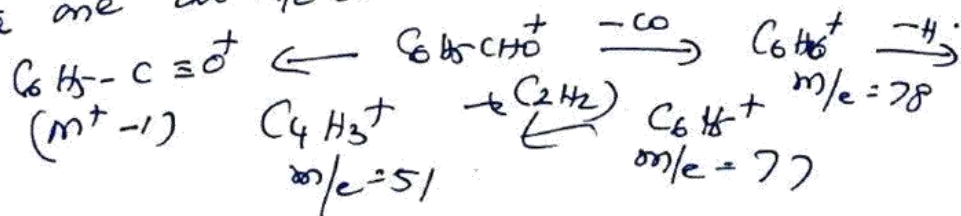 one
C6H5-C≡O+ ← C6H5-CHO+ -CO→ C6H6+ -H·→
(m+ -1) C4H3+ (C2H2) ← C6H5+ m/e = 78
m/e = 51 m/e = 77